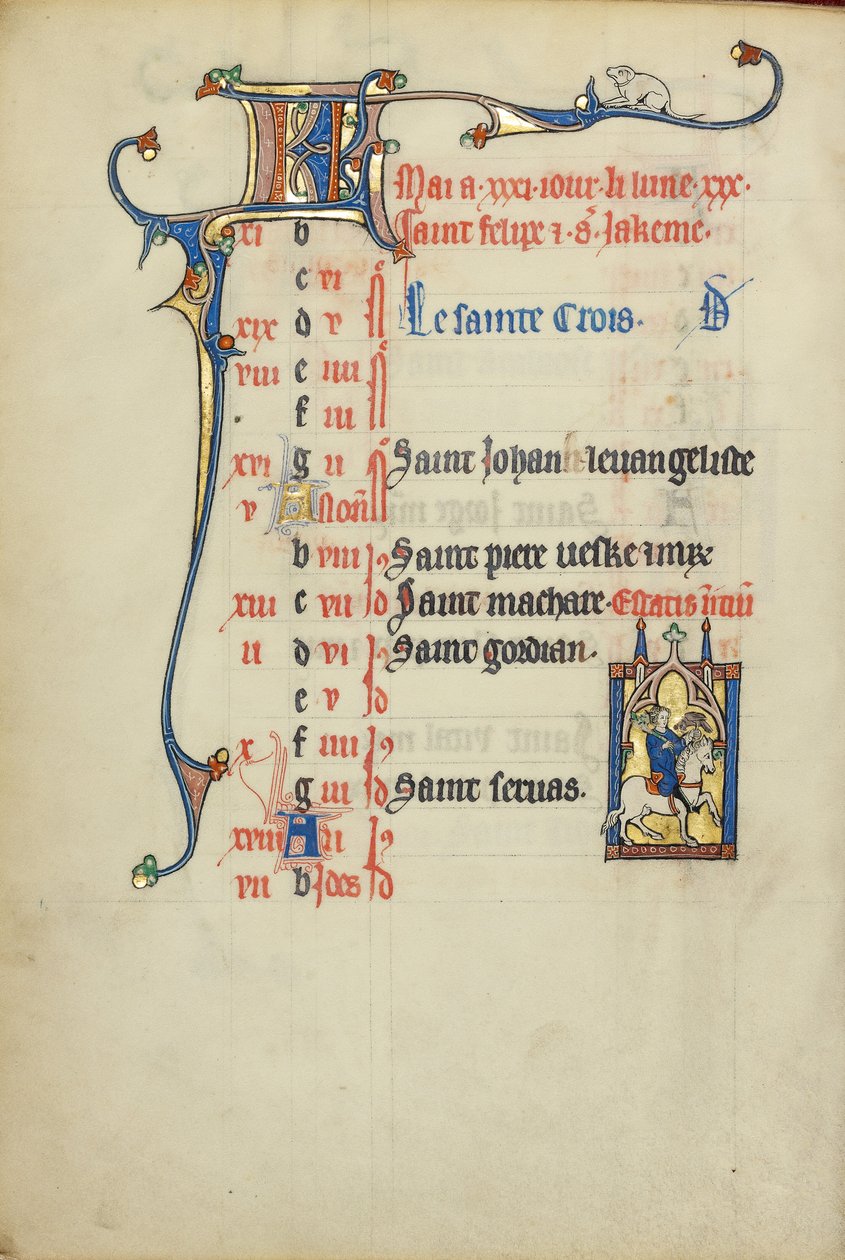 KL Mai a·xxxi·iour·li lune·xxx·
xi b Saint felipe ⁊·s̃·Jakeme·
c vi
xix d v Le sainte Crois· D
viii e iiii
f iii
xvi g ii Saint Johan leuangeliste
v A non̄
b viii Id Saint piere ueske ⁊ mr̄
xiii c vii Id Saint machare· Estatis īitiū
ii d vi Id Saint gordian·
e v Id
x f iiii Id
g iii Id Saint seruas·
xviii A ii Id
vii b Idus